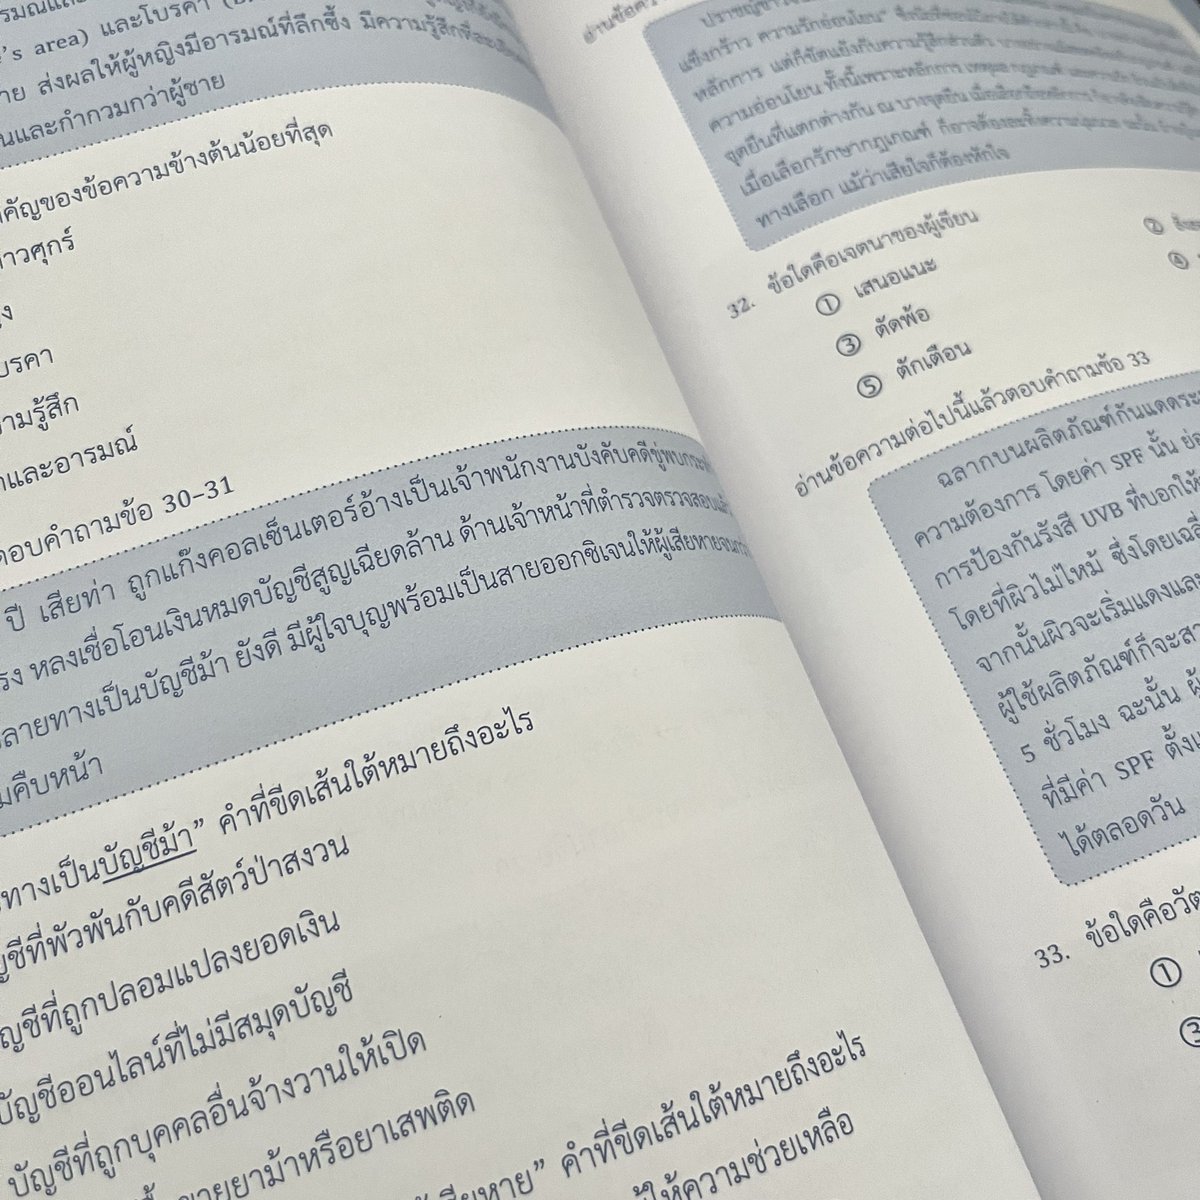 's area) และโบรคา
าย ส่งผลให้ผู้หญิงมีอารมณ์ที่ลึกซึ้ง มีความรู้สึกที่
นและกำกวมกว่าผู้ชาย
คัญของข้อความข้างต้นน้อยที่สุด
าวศุกร์
ูง
บรคา
ามรู้สึก
าและอารมณ์
ตอบคำถามข้อ 30-31
ปี เสียท่า ถูกแก๊งคอลเซ็นเตอร์อ้างเป็นเจ้าพนักงานบังคับคดีขู่พบ
รง หลงเชื่อโอนเงินหมดบัญชีสูญเฉียดล้าน ด้านเจ้าหน้าที่ตำรวจตรวจสอบแล้ว
ลายทางเป็นบัญชีม้า ยังดี มีผู้ใจบุญพร้อมเป็นสายออกซิเจนให้ผู้เสียหาย
มคืบหน้า
ทางเป็นบัญชีม้า” คำที่ขีดเส้นใต้หมายถึงอะไร
ญชีที่พัวพันกับคดีสัตว์ป่าสงวน
ญชีที่ถูกปลอมแปลงยอดเงิน
บัญชีออนไลน์ที่ไม่มีสมุดบัญชี
บัญชีที่ถูกบุคคลอื่นจ้างวานให้เปิด
ขายยาม้าหรือยาเสพติด
เสียหาย” คำที่ขีดเส้นใต้หมายถึงอะไร
ผู้ให้ความช่วยเหลือ
แข็งกร้าว ความรักอ่อนโยน”
หลักการ แต่ก็ขัดแย้งกับความรู้สึกส่วนตัว
ความอ่อนโยน ทั้งนี้เพราะหลักการ
จุดยืนที่แตกต่างกัน ณ บางจุดยืน
เมื่อเลือกรักษากฎเกณฑ์ ก็อาจต้อง
ทางเลือก แม้ว่าเสียใจก็ต้องหักใจ
32. ข้อใดคือเจตนาของผู้เขียน
① เสนอแนะ
②
③ ตัดพ้อ
④
⑤ ตักเตือน
อ่านข้อความต่อไปนี้แล้วตอบคำถามข้อ 33
ฉลากบนผลิตภัณฑ์กันแดดระ
ความต้องการ โดยค่า SPF นั้น ย่อ
การป้องกันรังสี UVB ที่บอกให้
โดยที่ผิวไม่ไหม้ ซึ่งโดยเฉลี่
จากนั้นผิวจะเริ่มแดงและ
ผู้ใช้ผลิตภัณฑ์ก็จะสา
5 ชั่วโมง ฉะนั้น ผู้
ที่มีค่า SPF ตั้งแ
ได้ตลอดวัน
33. ข้อใดคือวัต
①
③